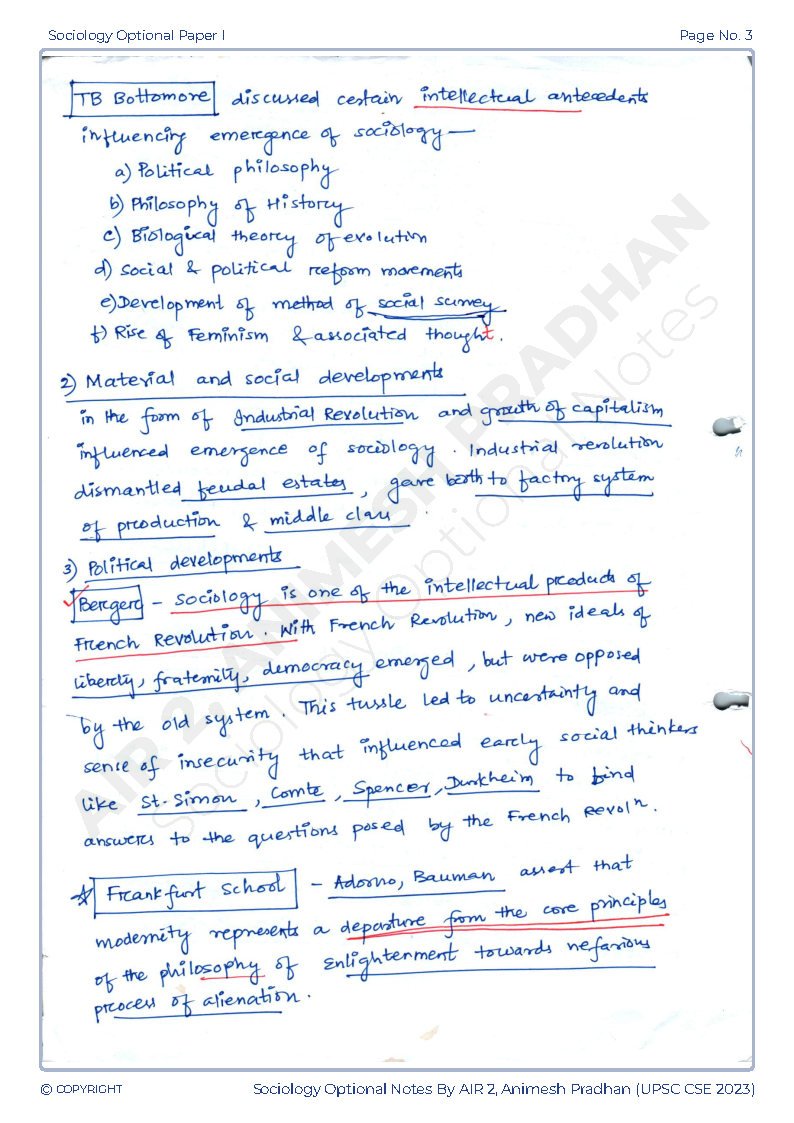 Sociology Optional Paper I
Page No. 3
TB Bottomore discussed certain intellectual antecedents
influencing emergence of sociology —
a) Political philosophy
b) Philosophy of History
c) Biological theory of evolution
d) Social & political reform movements
e) Development of method of social survey
f) Rise of Feminism & associated thought.
2) Material and social developments
in the form of Industrial Revolution and growth of capitalism
influenced emergence of sociology. Industrial revolution
dismantled feudal estates, gave birth to factory system
of production & middle class.
3) Political developments
Berger - Sociology is one of the intellectual products of
French Revolution. With French Revolution, new ideals of
liberty, fraternity, democracy emerged, but were opposed
by the old system. This tussle led to uncertainty and
sense of insecurity that influenced early social thinkers
like St. Simon, Comte, Spencer, Durkheim to find
answers to the questions posed by the French Revolⁿ.
☆ Frankfurt School - Adorno, Bauman assert that
modernity represents a departure from the core principles
of the philosophy of Enlightenment towards nefarious
process of alienation.
AIR 2, ANIMESH PRADHAN
Sociology Optional Notes
© COPYRIGHT
Sociology Optional Notes By AIR 2, Animesh Pradhan (UPSC CSE 2023)